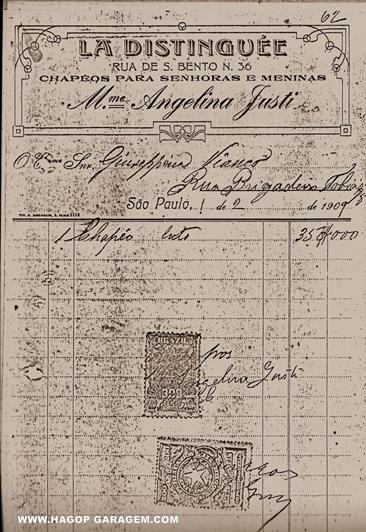 62
LA DISTINGUÉE
RUA DE S. BENTO N. 36
CHAPÉOS PARA SENHORAS E MENINAS
Mme. Angelina Justi
O Exmo Snr. Giuseppina
Rua Brigadeiro Tobias
São Paulo, 1 de 2 de 1909
1 Chapéo 35$000
Angelina Justi
WWW.HAGOP GARAGEM.COM